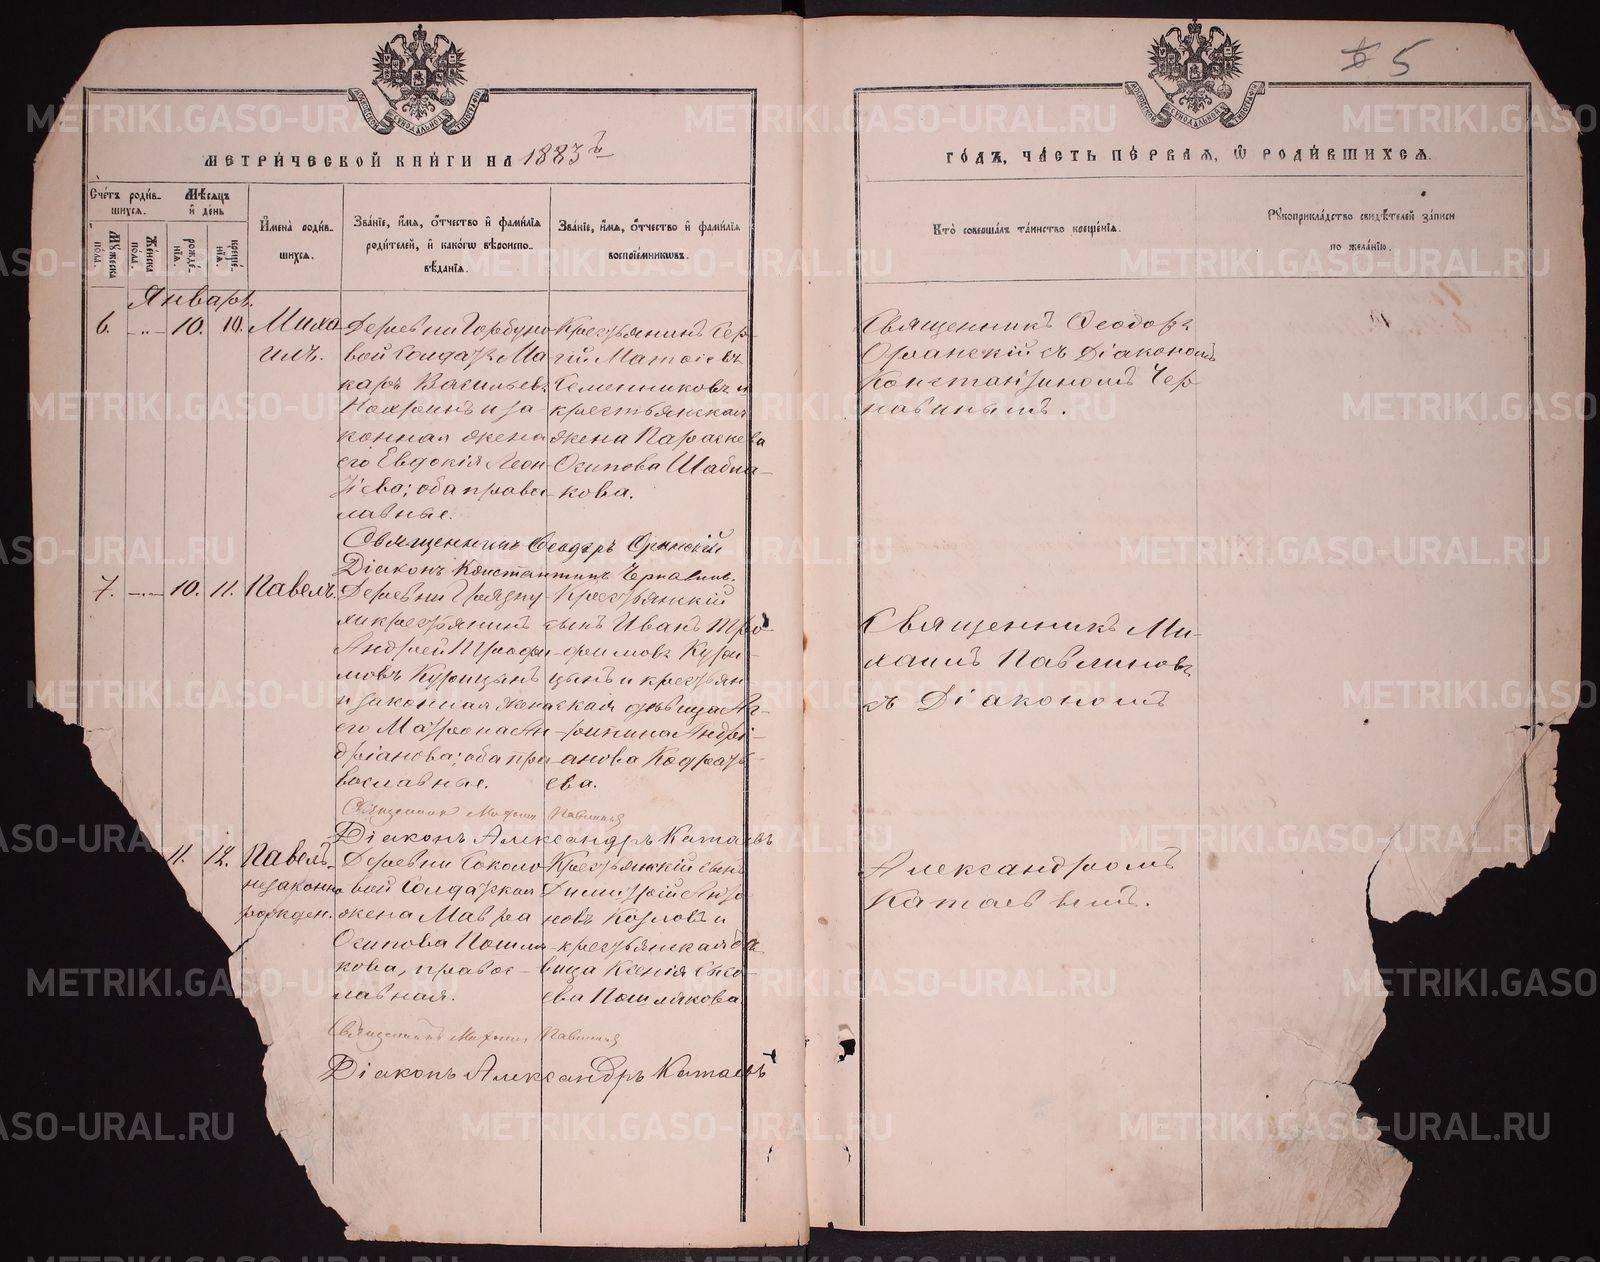 5
МЕТРИЧЕСКОЙ КНИГИ НА 1883й
ГОДЪ, ЧАСТЬ ПЕРВАЯ, Ѡ РОДИВШИХСЯ.
Счетъ родив-
шихся.
Мужеска пола.
Женска пола.
Мѣсяцъ
и день
рождениія.
крещенія.
Имена родив-
шихся.
Званіе, имя, отчество и фамилія
родителей, и какогѡ вѣроиспо-
вѣданія.
Званіе, имя, отчество и фамилія
воспріемникѡвъ.
Кто совершалъ таинство крещенія.
Рукоприкладство свидѣтелей записи
по желанію.
Январь.
6.
10.
10.
Миха-
илъ.
Деревни Горбуно-
вой солдатъ Ма-
каръ Васильевъ
и за-
конная жена
его Евдокія Леон-
тіева; оба право-
лавные.
Крестьянинъ Сер-
гій Матѳіевъ
Семенниковъ и
крестьянская
жена Параскева
Осипова
кова.
Священникъ Ѳеодоръ
съ Діакономъ
Константиномъ Чер-
навинымъ.
Священникъ Ѳеодоръ
Діаконъ Константинъ Чернавинъ.
7.
10.
11.
Павелъ.
Деревни
крестьянинъ
Андрей Троѳи-
мовъ Курицынъ
и законная жена
его Матрона Ан-
дріанова; оба пра-
вославные.
Крестьянскій
сынъ Иванъ Тро-
фимовъ Кури-
цынъ и крестьян-
ская дѣвица Аг-
рипина Андрі-
анова Кодрать-
ева.
Священникъ Ми-
хаилъ Павлиновъ
съ Діакономъ
Священникъ Михаилъ Павлиновъ
Діаконъ Александръ Катаевъ
11.
12.
Павелъ
незаконно
рожден.
Деревни Соколо-
вой Солдатская
жена Мавра
Осипова Пошля-
кова, правос-
лавная.
Крестьянскій сынъ
Димитрій Анто-
новъ Козловъ и
крестьянская дѣ-
вица Ксенія Сысо-
ева Пошлякова.
Александромъ
Катаевымъ.
Священникъ Михаилъ Павлиновъ
Діаконъ Александръ Катаевъ
METRIKI.GASO-URAL.RU